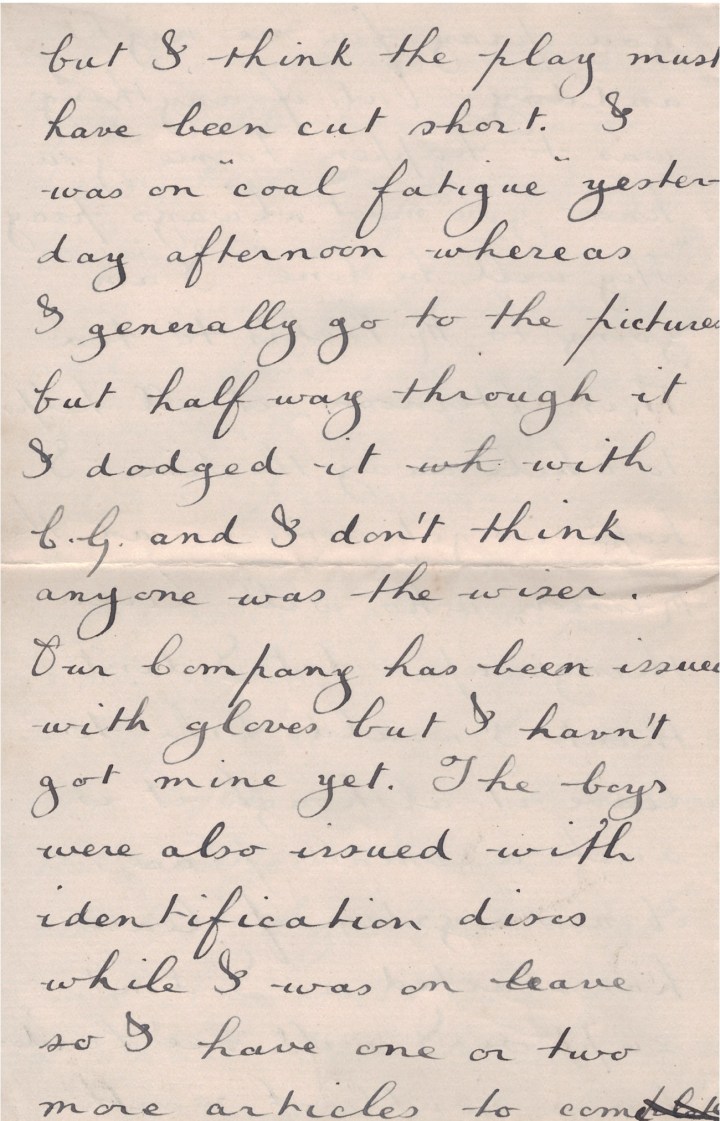 but I think the play must
have been cut short. I
was on "coal fatigue" yester-
day afternoon whereas
I generally go to the pictures
but half way through it
I dodged it wh with
C.G. and I don't think
anyone was the wiser.
Our Company has been issued
with gloves but I havn't
got mine yet. The boys
were also issued with
identification discs
while I was on leave
so I have one or two
more articles to com